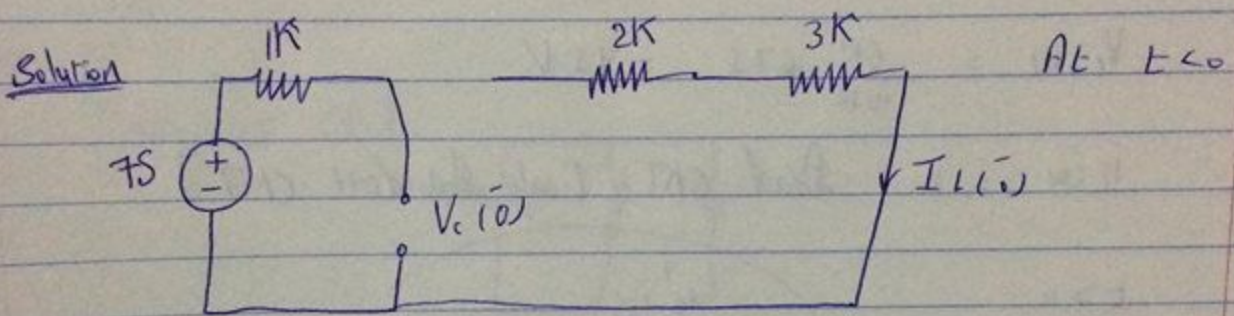 Solution 1K 2K 3K At t<0
75 + - Vc(0⁻) IL(0⁻)